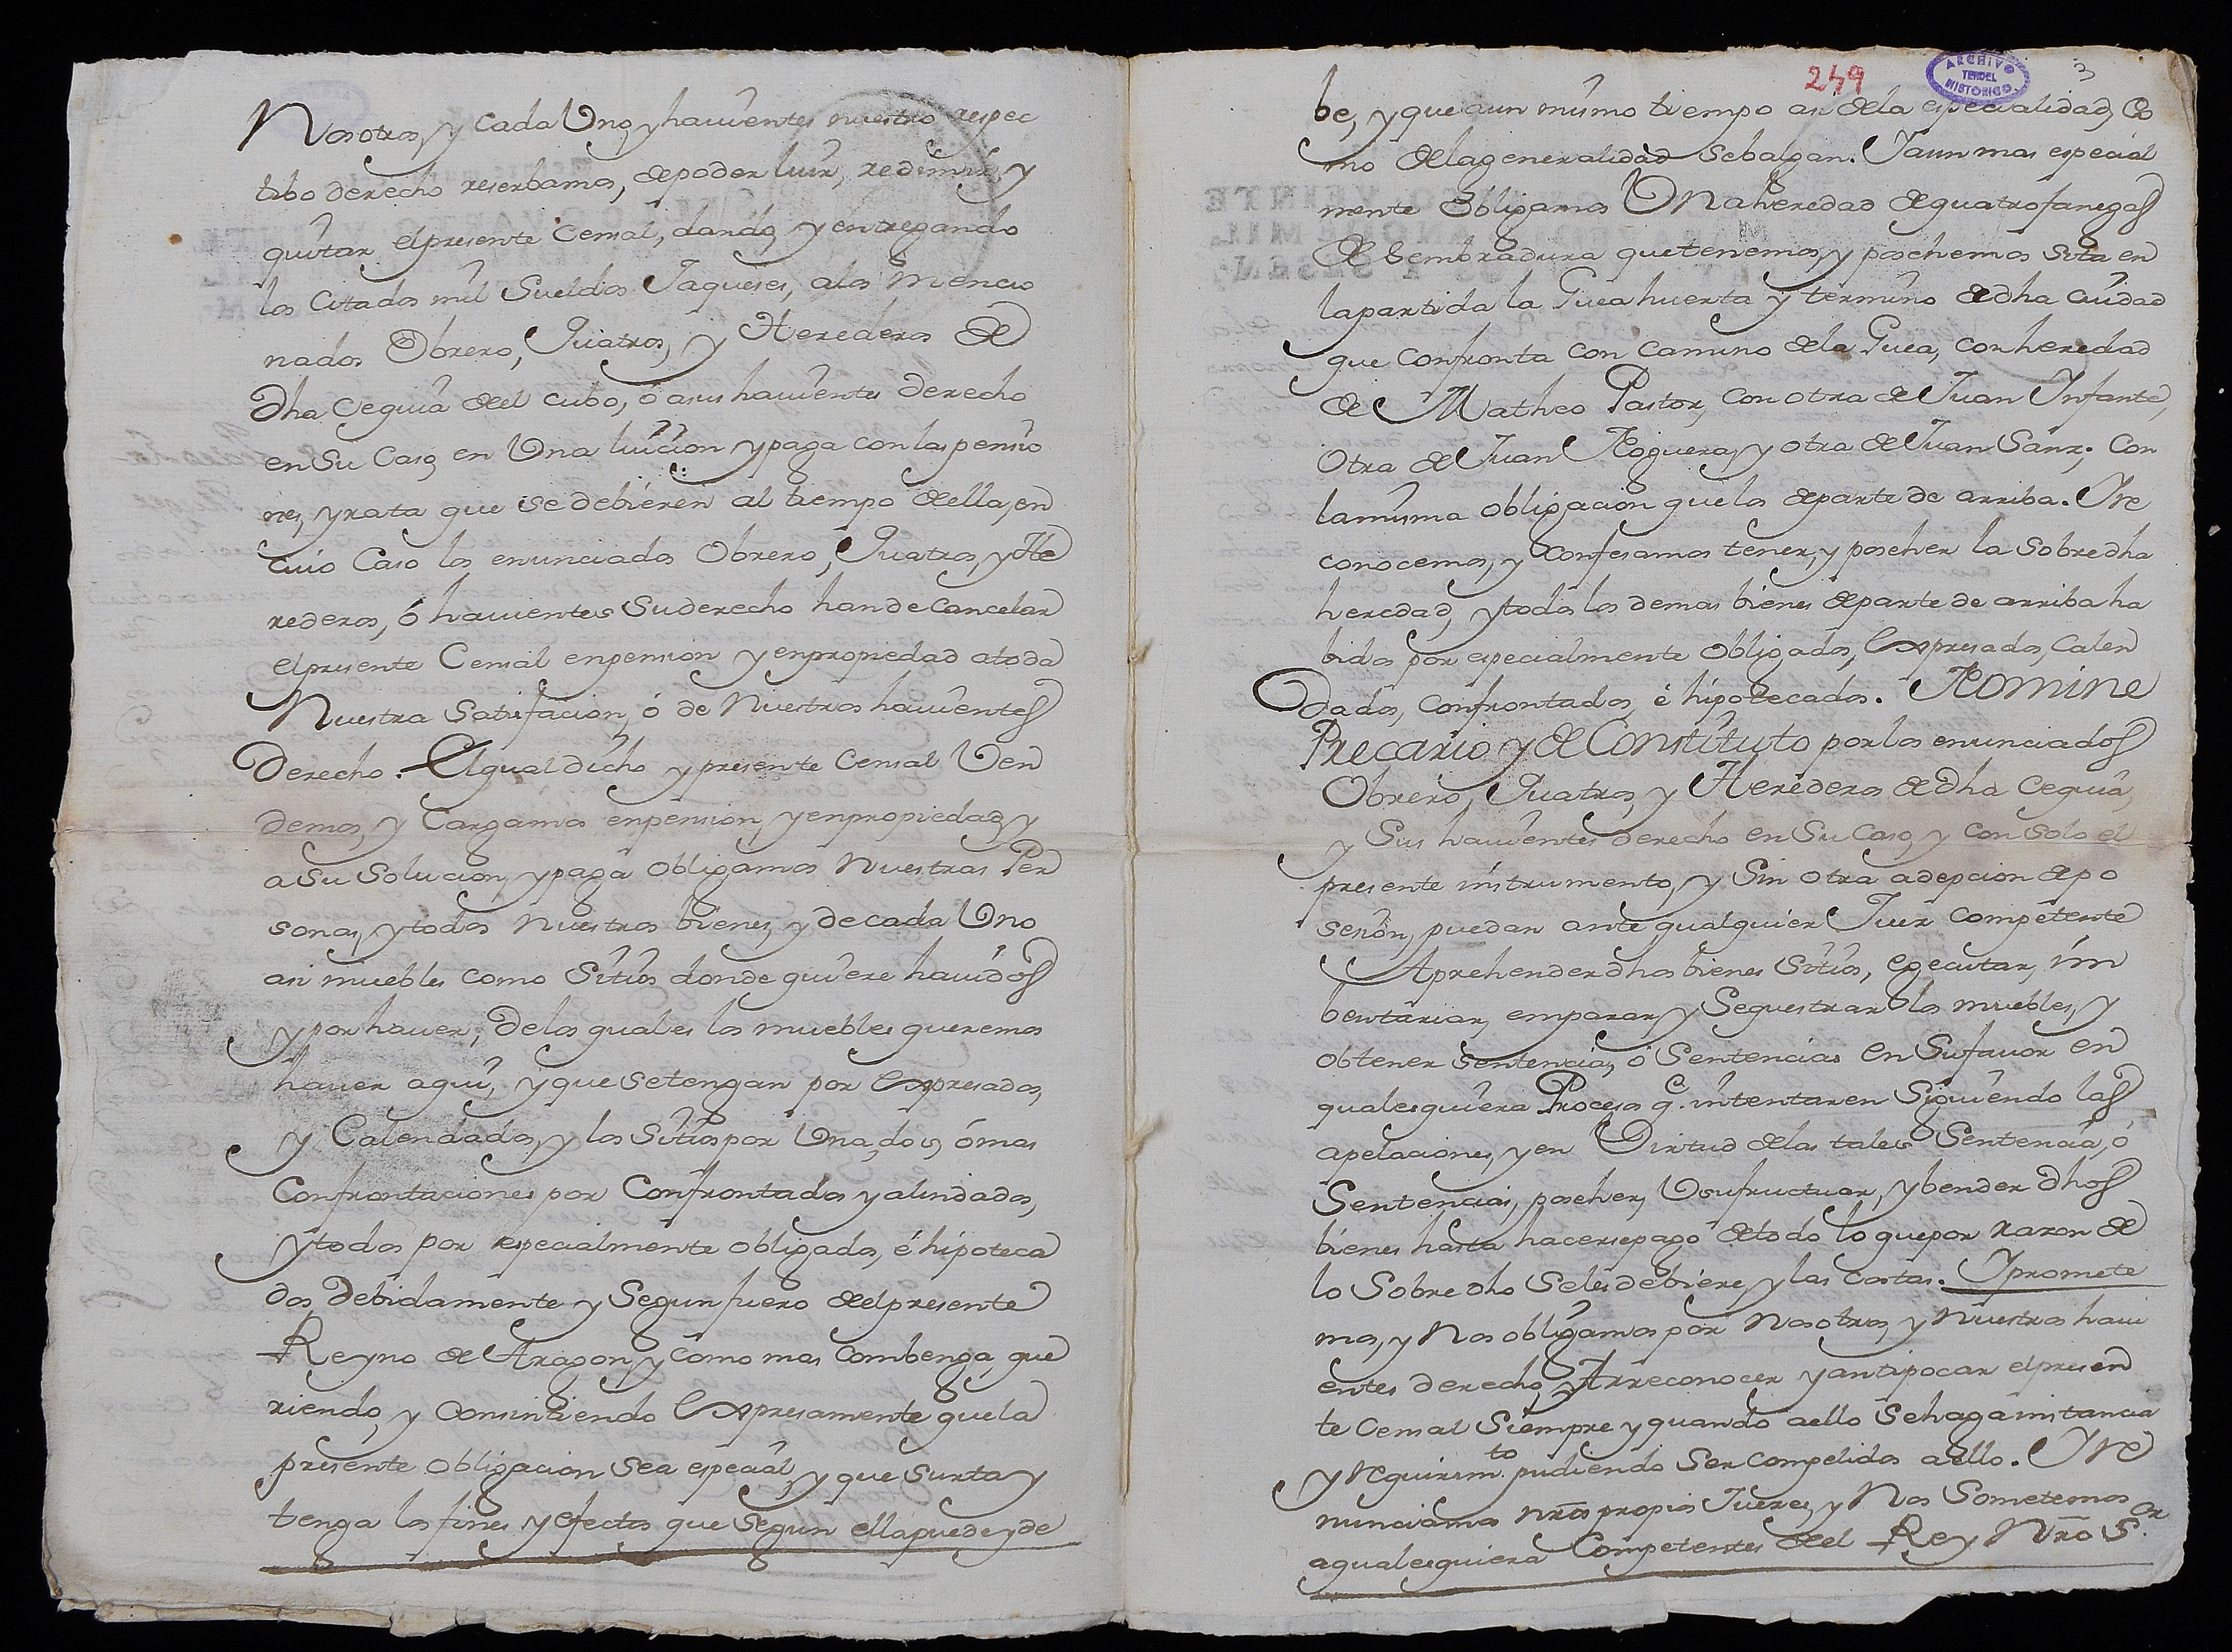 Nosotros, y cada Uno, y havientes nuestro respec
tibo derecho reserbamos, de poder luir, redimir, y
quitar el presente Censal, dando, y entregando
los Citados mil Sueldos Jaqueses, a los Mencio
nados Obrero, Quatros, y Herederos de
dha Cequia del cubo, ó a sus havientes derecho
en Su Caso, en Una luicion y paga con las pensio
nes, y rata que se debieren al tiempo de ella, en
cuio Caso los enunciados Obrero, Quatros, y He
rederos, ó havientes Su derecho han de Cancelar
el presente Censal en pension y en propiedad a toda
Nuestra Satisfacion, ó de Nuestros havientes
Derecho. El qual dicho y presente Censal Ven
demos, y Cargamos en pension, y en propiedad, y
a Su Solucion, y paga obligamos Nuestras Per
sonas, y todos Nuestros bienes, y de cada Uno
asi muebles como Sitios donde quiere havidos
y por haver; de los quales los muebles queremos
haver aqui, y que se tengan por Expresados,
y Calendados, y los Sitios por Una, dos, ó mas
Confrontaciones por Confrontados y alindados,
y todos por especialmente obligados, é hipoteca
dos, debidamente y Segun fuero del presente
Reyno de Aragon, y como mas Combenga, que
riendo, y Consintiendo Expresamente que la
presente obligacion Sea especial, y que Surta y
tenga los fines y efectos que Segun ella puede y de
249
3
ARCHIVO
HISTORICO
TERUEL
be, y que a un mismo tiempo asi de la especialidad, Co
mo de la generalidad se balgan. Y aun mas especial
mente obligamos Una heredad de quatro fanegas
de Sembradura que tenemos, y posehemos Sita en
la partida la Guea huerta y termino de dha Ciudad
que Confronta con Camino de la Guea, con heredad
de Matheo Pastor, con otra de Juan Infante,
otra de Juan Noguera, y otra de Juan Sanz; Con
la misma obligacion que los de parte de arriba. Y Re
conocemos, y Confesamos tener, y poseher la Sobredha
heredad, y todos los demas bienes de parte de arriba ha
bidos por especialmente obligados, Expresados, Calen
dados, Confrontados, é hipotecados. Nomine
Precario y de Constituto por los enunciados
Obrero, Quatros, y Herederos de dha Cequia,
y Sus havientes derecho en Su Caso, y con solo el
presente instrumento, y Sin otra adepcion de po
sesion, puedan ante qualquier Juez Competente
Aprehender dhos bienes Sitios, executar, im
bentariar, emparar, y Sequestrar los muebles, y
obtener Sentencia, ó Sentencias en Su favor en
qualesquiera Procesos q. intentaren Siguiendo las
apelaciones, y en Virtud de las tales Sentencia, ó
Sentencias, poseher, Usufructuar, y bender dhos
bienes hasta hacerse pago de todo lo que por razon de
lo Sobredho Se les debiere, y las Costas. Y promete
mos, y Nos obligamos por Nosotros, y Nuestros havi
entes derecho, Arreconocer y antipocar el presen
te Censal Siempre y quando a ello Se haga instancia
y requirim.to pudiendo Ser Compelidos a ello. Y Re
nunciamos nros propios Jueces, y Nos Sometemos
a qualesquiera Competentes del Rey Nro S.or